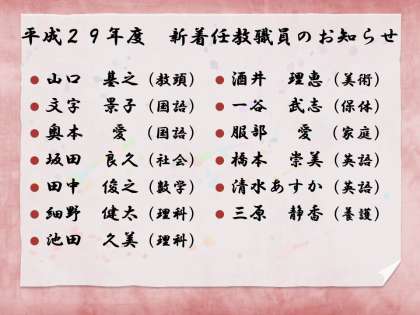 平成２９年度　新着任教職員のお知らせ
山口　基之（教頭）
文字　景子（国語）
奥本　愛（国語）
坂田　良久（社会）
田中　俊之（数学）
細野　健太（理科）
池田　久美（理科）
酒井　理恵（美術）
一谷　武志（保体）
服部　愛（家庭）
橋本　崇美（英語）
清水あすか（英語）
三原　静香（養護）